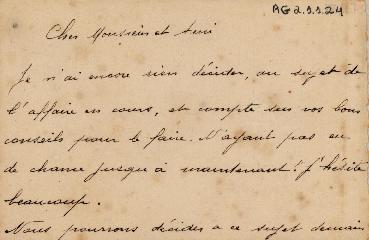 RG 2.1.1.24
Cher Monsieur et Ami
Je n'ai encore rien décider, au sujet de
l'affaire en cours, et compte sur vos bons
conseils pour le faire. N'ayant pas eu
de chance jusqu'à maintenant! J'hésite
beaucoup.
Nous pourrons décider a ce sujet demain